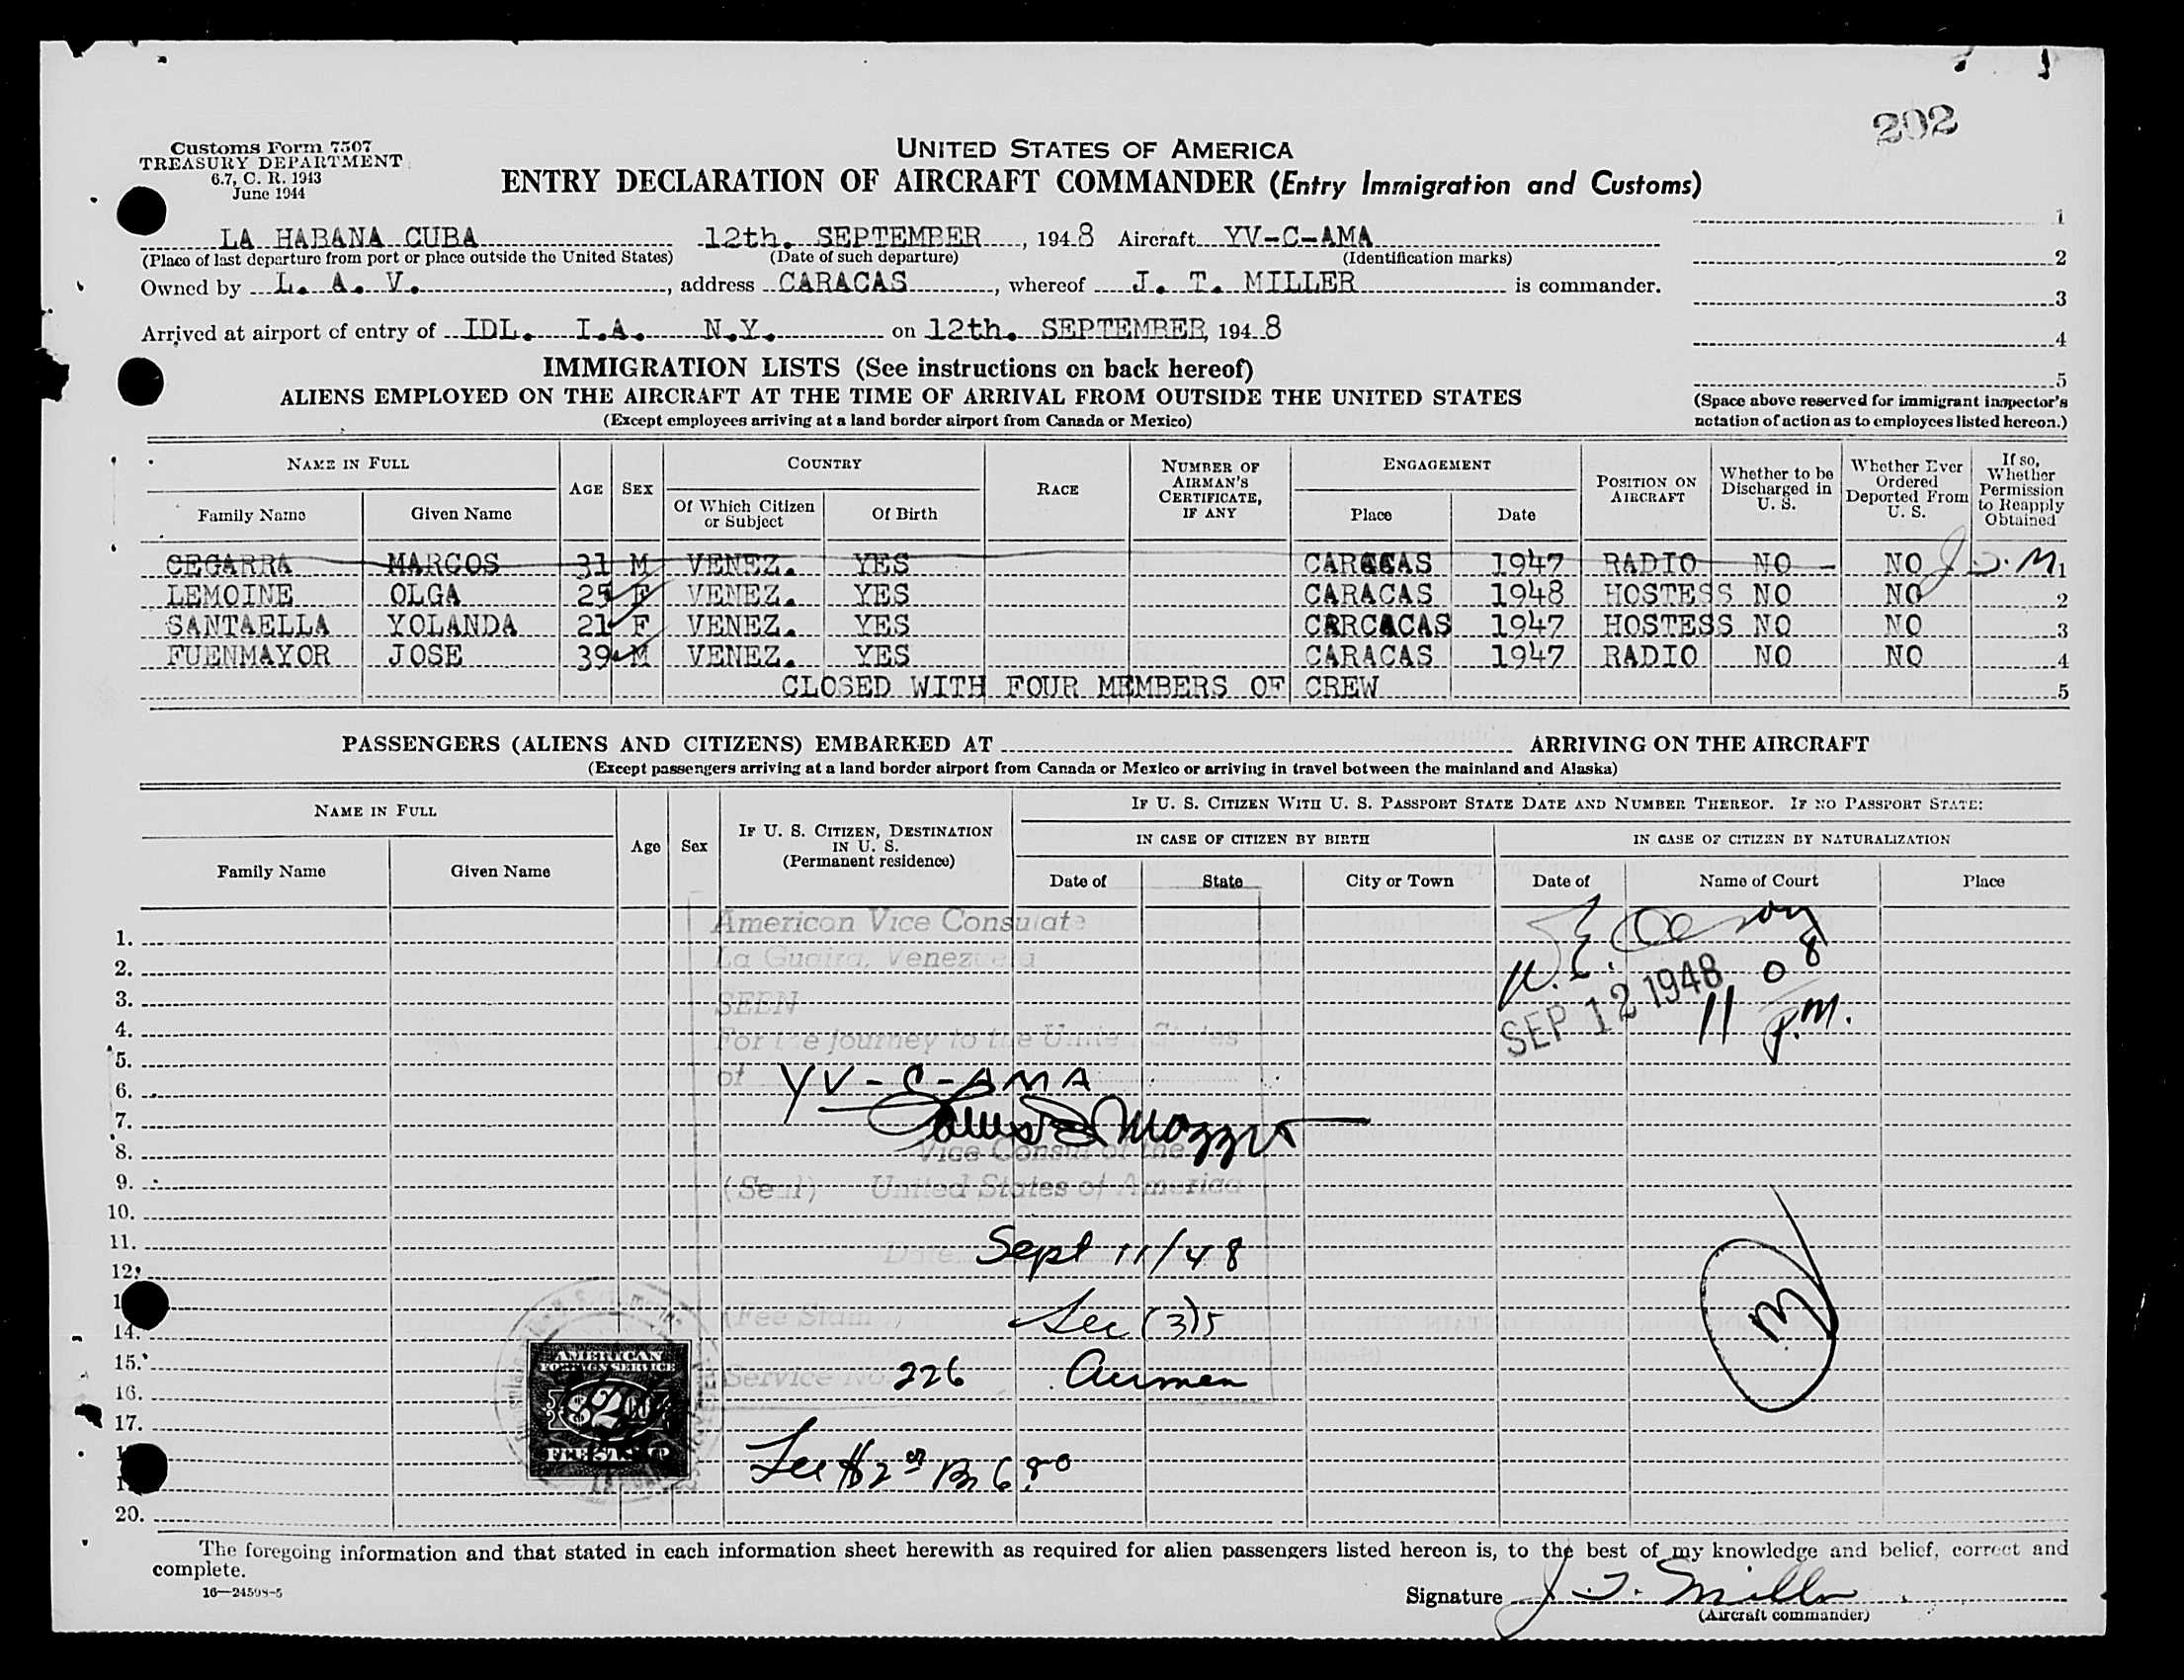 202
Customs Form 7507
TREASURY DEPARTMENT
6.7, C. R. 1943
June 1944
UNITED STATES OF AMERICA
ENTRY DECLARATION OF AIRCRAFT COMMANDER (Entry Immigration and Customs)
LA HABANA CUBA 12th. SEPTEMBER, 1948 Aircraft YV-C-AMA
(Place of last departure from port or place outside the United States) (Date of such departure) (Identification marks)
Owned by L. A. V., address CARACAS, whereof J. T. MILLER is commander.
Arrived at airport of entry of IDL. I.A. N.Y. on 12th. SEPTEMBER, 1948
1
2
3
4
5
(Space above reserved for immigrant inspector's
notation of action as to employees listed hereon.)
IMMIGRATION LISTS (See instructions on back hereof)
ALIENS EMPLOYED ON THE AIRCRAFT AT THE TIME OF ARRIVAL FROM OUTSIDE THE UNITED STATES
(Except employees arriving at a land border airport from Canada or Mexico)
NAME IN FULL
Family Name Given Name
AGE SEX
COUNTRY
Of Which Citizen or Subject Of Birth
RACE
NUMBER OF AIRMAN'S CERTIFICATE, IF ANY
ENGAGEMENT
Place Date
POSITION ON AIRCRAFT
Whether to be Discharged in U. S.
Whether Ever Ordered Deported From U. S.
If so, Whether Permission to Reapply Obtained
CEGARRA MARCOS 31 M VENEZ. YES CARACAS 1947 RADIO NO NO J.T.M. 1
LEMOINE OLGA 25 F VENEZ. YES CARACAS 1948 HOSTESS NO NO 2
SANTAELLA YOLANDA 21 F VENEZ. YES CARCACAS 1947 HOSTESS NO NO 3
FUENMAYOR JOSE 39 M VENEZ. YES CARACAS 1947 RADIO NO NO 4
CLOSED WITH FOUR MEMBERS OF CREW 5
PASSENGERS (ALIENS AND CITIZENS) EMBARKED AT ARRIVING ON THE AIRCRAFT
(Except passengers arriving at a land border airport from Canada or Mexico or arriving in travel between the mainland and Alaska)
NAME IN FULL
Family Name Given Name
Age Sex
IF U. S. CITIZEN, DESTINATION IN U. S. (Permanent residence)
IF U. S. CITIZEN WITH U. S. PASSPORT STATE DATE AND NUMBER THEREOF. IF NO PASSPORT STATE:
IN CASE OF CITIZEN BY BIRTH IN CASE OF CITIZEN BY NATURALIZATION
Date of State City or Town Date of Name of Court Place
American Vice Consulate
1.
La Guaira, Venezuela
2.
SEEN
3.
SEP 12 1948 11 08 P.M.
4.
For the journey to the United States
5.
of YV-C-AMA
6.
7.
8.
Vice Consul of the
9.
(Seal) United States of America
10.
11.
Date Sept 11/48
12.
14.
(Fee Stamp) Sec (3)5
15.
Service No. 226 Airmen
16.
17.
AMERICAN
FOREIGN SERVICE
$2.00
FEE STAMP
Fee $2.00 Bs 6.80
20.
The foregoing information and that stated in each information sheet herewith as required for alien passengers listed hereon is, to the best of my knowledge and belief, correct and
complete.
16—24598-5
Signature J. T. Miller
(Aircraft commander)